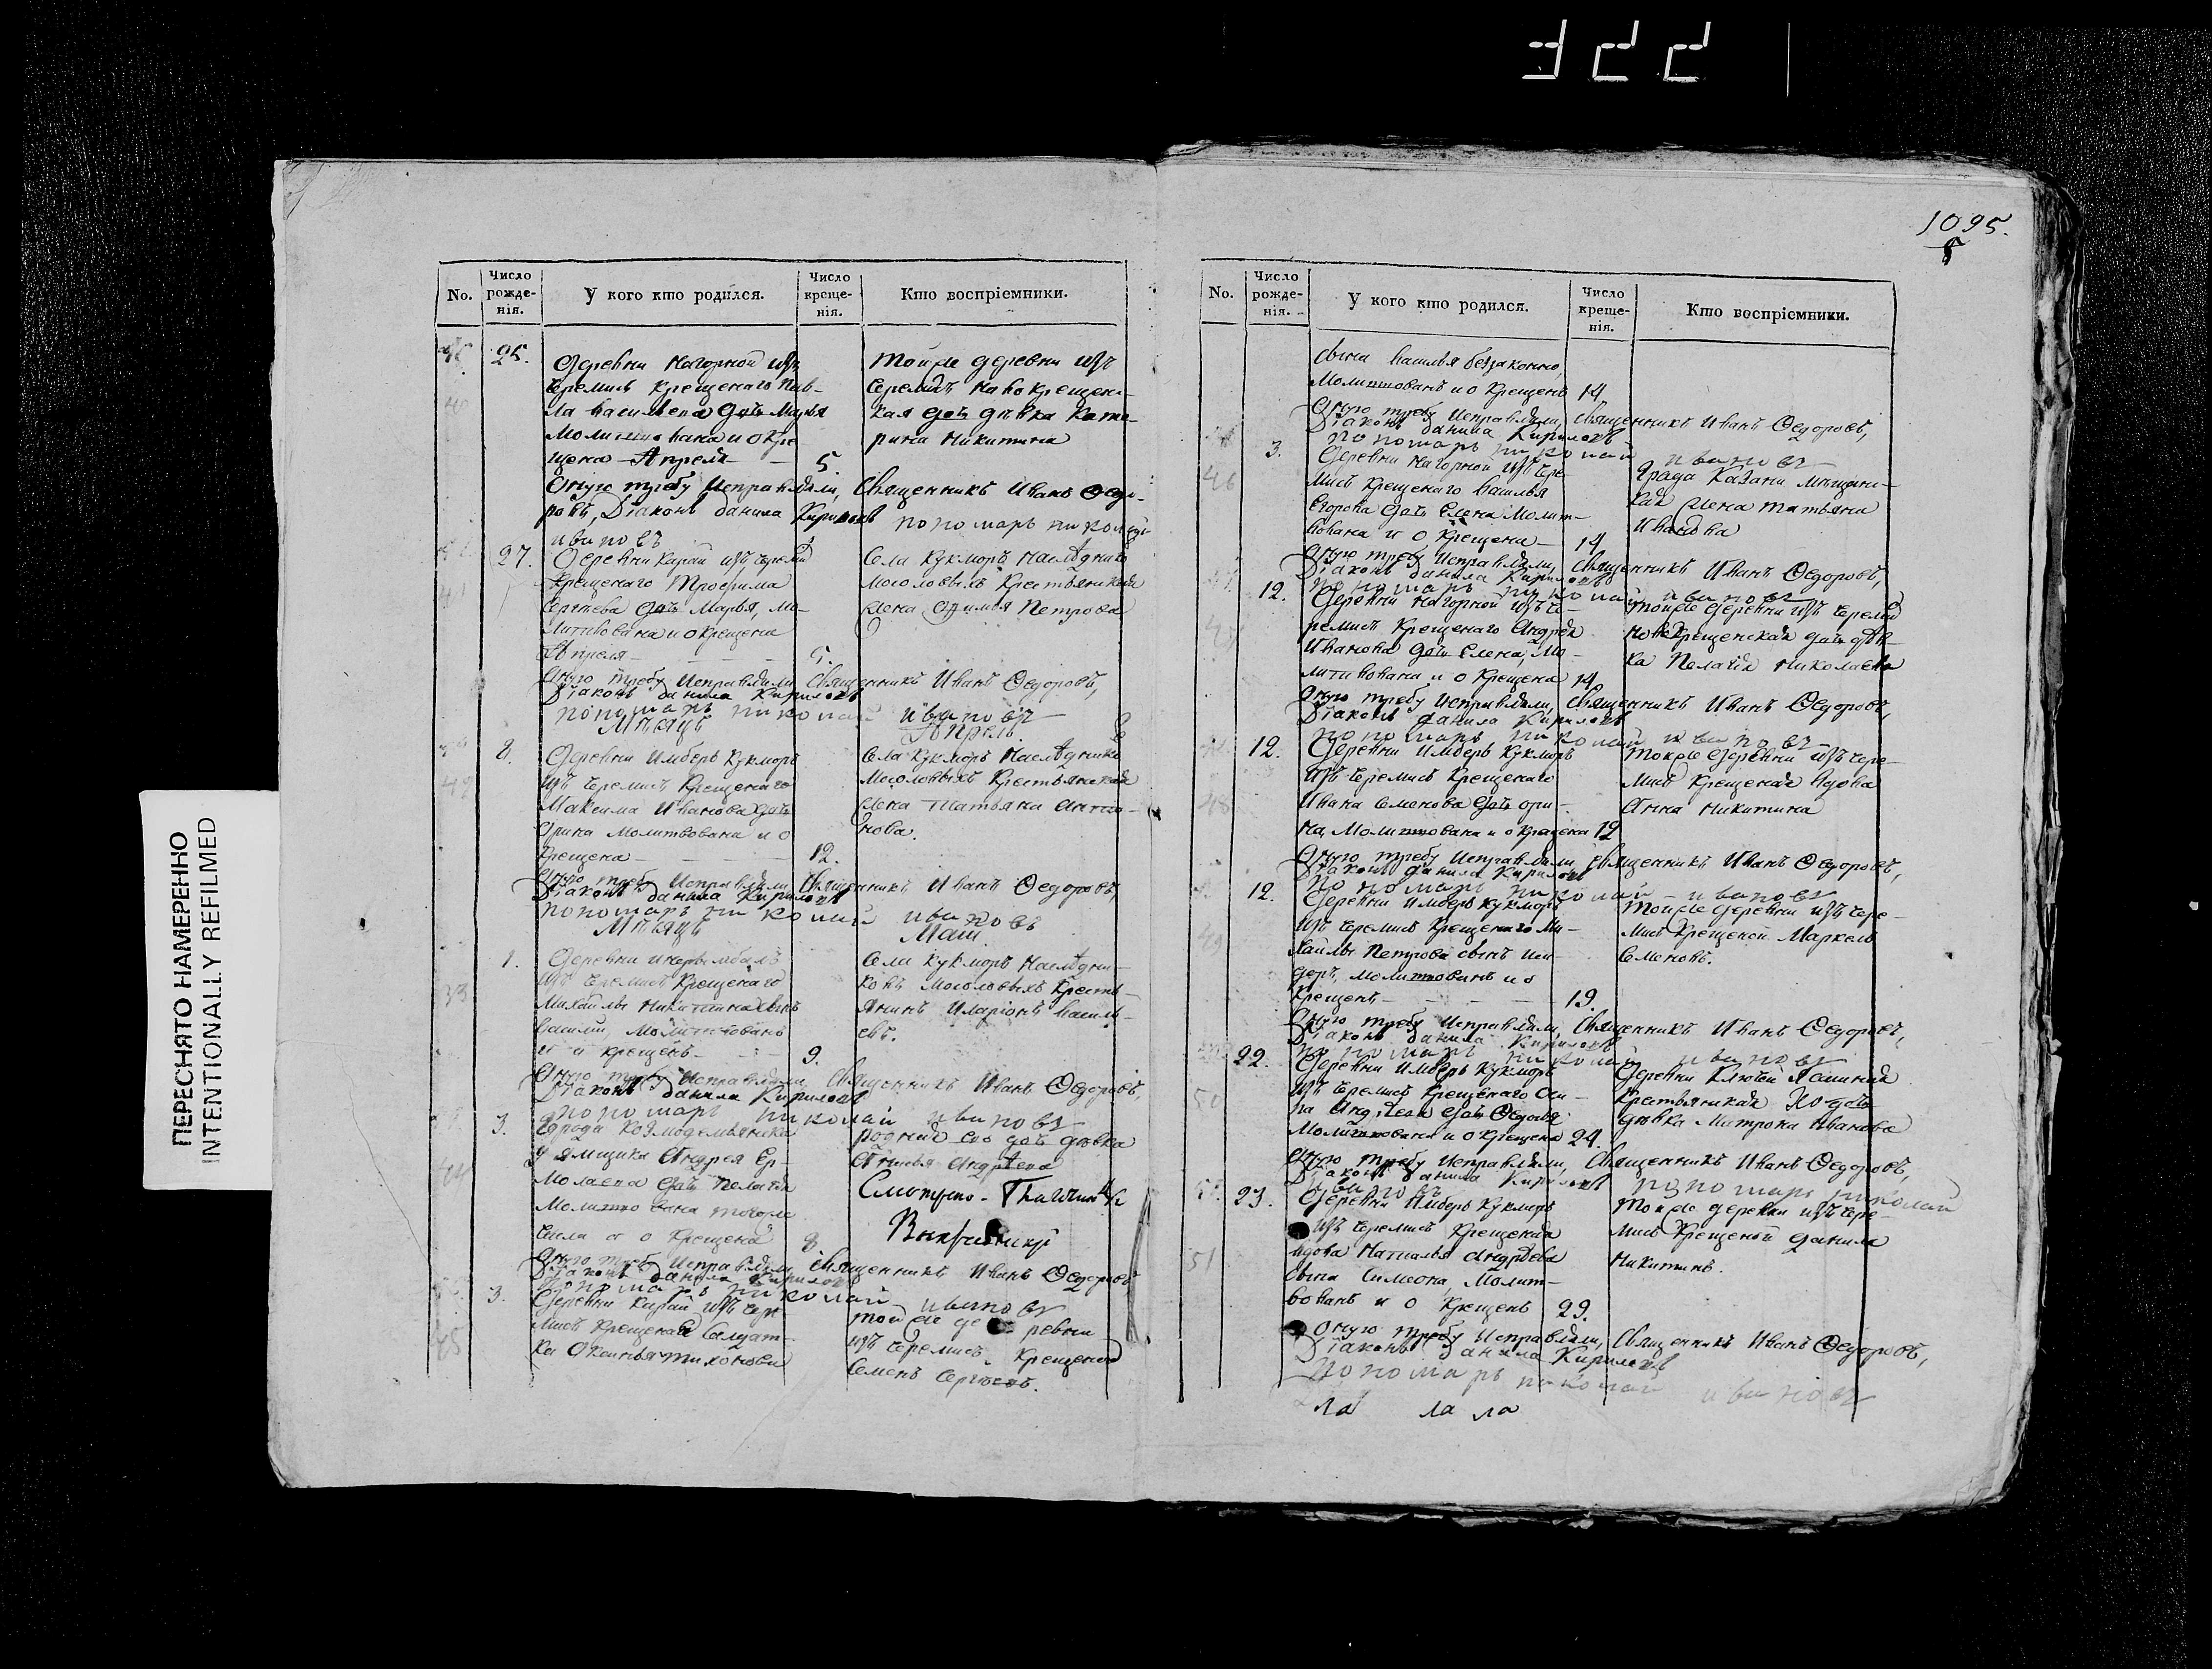 322
1095.
ПЕРЕСНЯТО НАМЕРЕННО
INTENTIONALLY REFILMED
No.
Число рожде-нія.
У кого кто родился.
Число креще-нія.
Кто воспріемники.
25.
Деревни Нагорной изъ
Черемисъ Крещенаго Пав-
ла Васильева дочь Марья
Молитвована и о Кре
щена Апреля 5.
тойже деревни изъ
Черемисъ Новокрещенс-
кая дочь дѣвка Кате-
рина Никитина
Оную требу Исправляли, Священникъ Иванъ Ѳедо-
ровъ, Діаконъ Данила Кириловъ пономарь николай
ивановъ
27.
Деревни Карай изъ черемисъ
Крещенаго Трофима
Сергѣева дочь Марья, мо-
литвована и окрещена
Апреля 5.
Села Кукморъ Наслѣдниковъ
Мосоловыхъ Крестьянская
Жена Петрова
Оную требу Исправляли Священникъ Иванъ Ѳедоровъ,
Діаконъ Данила Кириловъ
пономарь николай ивановъ
Мѣсяцъ Апрель
8.
Деревни Имберь Кукморъ
изъ Черемисъ Крещенаго
Максима Иванова дочь
Ирина Молитвована и о
крещена 12.
Села Кукморъ Наслѣдниковъ
Мосоловыхъ Крестьянская
Жена Татьяна Анто-
нова.
Оную требу Исправляли Священникъ Иванъ Ѳедоровъ,
Діаконъ Данила Кириловъ
пономарь николай ивановъ
Мѣсяцъ Маіи
1.
Деревни
изъ Черемисъ Крещенаго
Михайлы Никитина сынъ
Василій, Молитвованъ
и о крещенъ 9.
Села Кукморъ Наслѣдни-
ковъ Мосоловыхъ Кресть-
янинъ Иларіонъ Василь-
евъ.
Оную требу Исправляли Священникъ Иванъ Ѳедоровъ,
Діаконъ Данила Кириловъ
пономарь николай ивановъ
3.
Града Козмодемьянска
ямщика Андрея Ер-
молаева дочь Пелагія
Молитвована тогоже
числа и о Крещена 8
родная его дочь дѣвка
Андрѣева
Оную требу Исправляли Священникъ Иванъ Ѳедоровъ
Діаконъ Данила Кириловъ
пономарь николай ивановъ
3.
Деревни Карай изъ чере
мисъ Крещеная Салдат-
ка Тихонова
тойже деревни
изъ Черемисъ Крещеной
Семенъ Сергѣевъ.
No.
Число рожде-нія.
У кого кто родился.
Число креще-нія.
Кто воспріемники.
сына Василья беззаконно,
Молитвованъ и о Крещенъ 14.
Оную требу Исправляли, Священникъ Иванъ Ѳедоровъ,
Діаконъ Данила Кириловъ
пономарь николай ивановъ
3.
46
Деревни Нагорной изъ Чере-
мисъ Крещенаго Василья
Егорова дочь Елена Молит-
вована и о Крещена 14
Града Казани мещанс-
кая Жена Татьяна
Иванова
Оную требу Исправляли, Священникъ Иванъ Ѳедоровъ,
Діаконъ Данила Кириловъ
пономарь николай ивановъ
12.
Деревни Нагорной изъ Че-
ремисъ Крещенаго Андрея
Иванова дочь Елена, Мо-
литвована и о Крещена 14
тойже деревни изъ Черемисъ
Новокрещенская дочь дѣв-
ка Пелагія Николаева
Оную требу Исправляли, Священникъ Иванъ Ѳедоровъ,
Діаконъ Данила Кириловъ
пономарь николай ивановъ
12.
48
Деревни Имберь Кукморъ
изъ Черемисъ Крещенаго
Ивана Семенова дочь Ори-
на, Молитвована и о Крещена 19
тойже Деревни изъ Чере-
мисъ Крещеная вдова
Анна Никитина
Оную требу Исправляли, Священникъ Иванъ Ѳедоровъ,
Діаконъ Данила Кириловъ
пономарь николай ивановъ
12.
49
Деревни Имберь Кукморъ
изъ Черемисъ Крещенаго Ми-
хайлы Петрова сынъ Иси-
доръ, молитвованъ и о
Крещенъ 19.
тойже деревни изъ Чере-
мисъ Крещеной Маркелъ
Семеновъ.
Оную требу Исправляли, Священникъ Иванъ Ѳедоровъ,
Діаконъ Данила Кириловъ
пономарь николай ивановъ
22.
50
Деревни Имберь Кукморъ
изъ Черемисъ Крещенаго Оси-
па Андрѣева дочь Ѳедосья
Молитвована и о Крещена 24.
Деревни Ключей
Крестьянская дочь
дѣвка Матрона Иванова
Оную требу Исправляли, Священникъ Иванъ Ѳедоровъ,
Діаконъ Данила Кириловъ пономарь николай
ивановъ
23.
51
Деревни Имберь Кукморъ
изъ Черемисъ Крещеная
вдова Наталья Андрѣева
сына Симеона, Молит-
вованъ и о Крещенъ 29.
тойже деревни изъ Чере-
мисъ Крещеной Данила
Никитинъ.
Оную требу Исправляли, Священникъ Иванъ Ѳедоровъ,
Діаконъ Данила Кириловъ
пономарь николай ивановъ
ла ла ла